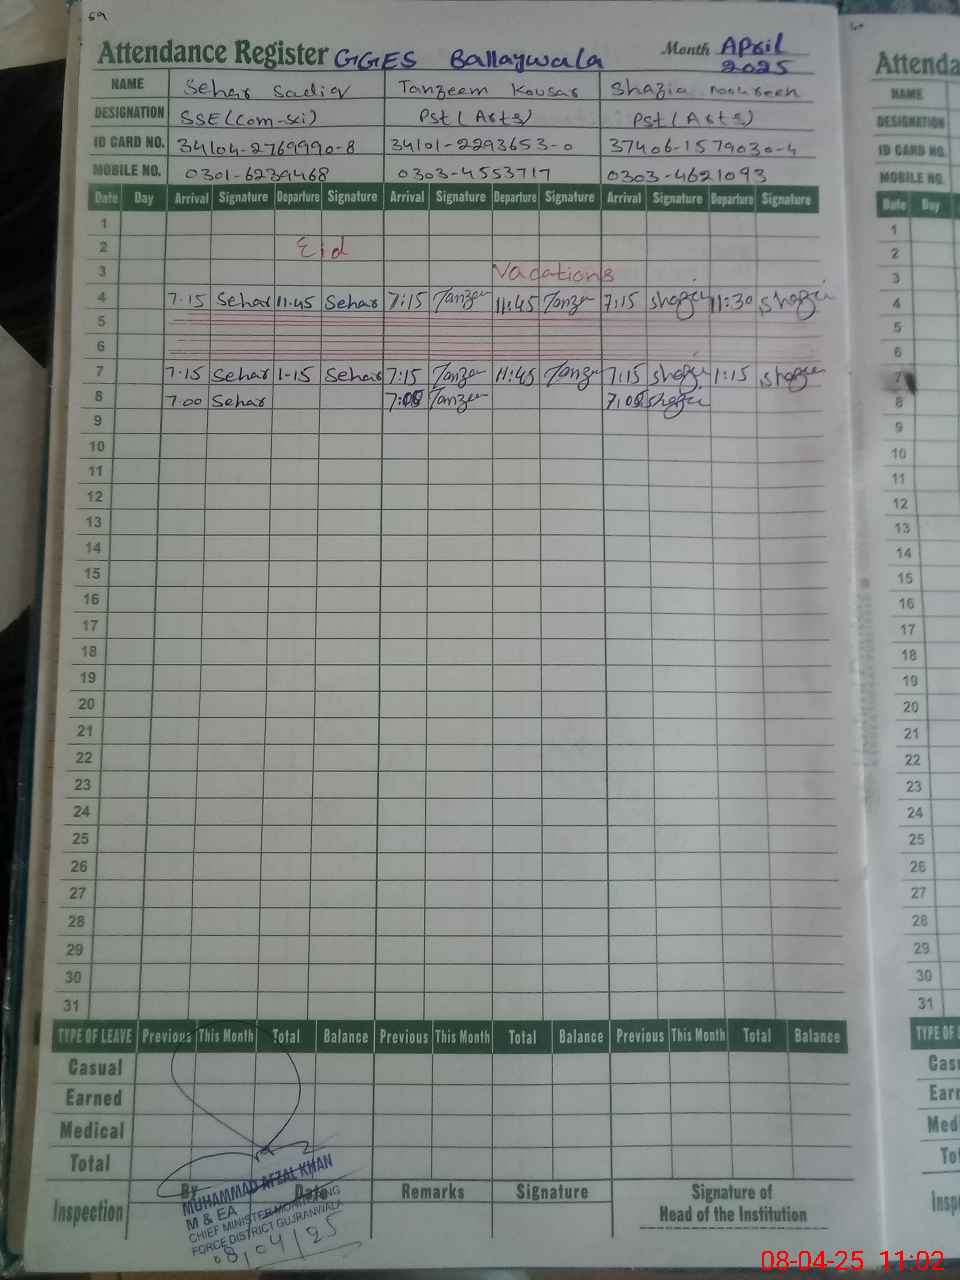 69
Attendance Register GGES Ballaywala Month April 2025
NAME Sehar Sadiq Tanzeem Kousar Shazia Noshreen
DESIGNATION SSE(Com-Sci) Pst(Arts) Pst(Arts)
ID CARD NO. 34104-2769990-8 34101-2293653-0 37406-1579030-4
MOBILE NO. 0301-6239468 0303-4553717 0303-4621093
Date Day Arrival Signature Departure Signature Arrival Signature Departure Signature Arrival Signature Departure Signature
1
2 Eid
3 Vacations
4 7.15 Sehar 11.45 Sehar 7:15 11:45 7:15 11:30
5
6
7 7.15 Sehar 1.15 Sehar 7:15 11:45 7:15 1:15
8 7.00 Sehar
9
10
11
12
13
14
15
16
17
18
19
20
21
22
23
24
25
26
27
28
29
30
31
TYPE OF LEAVE Previous This Month Total Balance Previous This Month Total Balance Previous This Month Total Balance
Casual
Earned
Medical
Total
Inspection By Date Remarks Signature Signature of
Head of the Institution
MUHAMMAD AFZAL KHAN
M & EA
CHIEF MINISTER MONITORING
FORCE DISTRICT GUJRANWALA
08/04/25
Attenda
NAME
DESIGNATION
ID CARD NO.
MOBILE NO.
Date Day
1
2
3
4
5
6
7
8
9
10
11
12
13
14
15
16
17
18
19
20
21
22
23
24
25
26
27
28
29
30
31
TYPE OF
Cas
Earn
Med
To
Insp
08-04-25 11:02